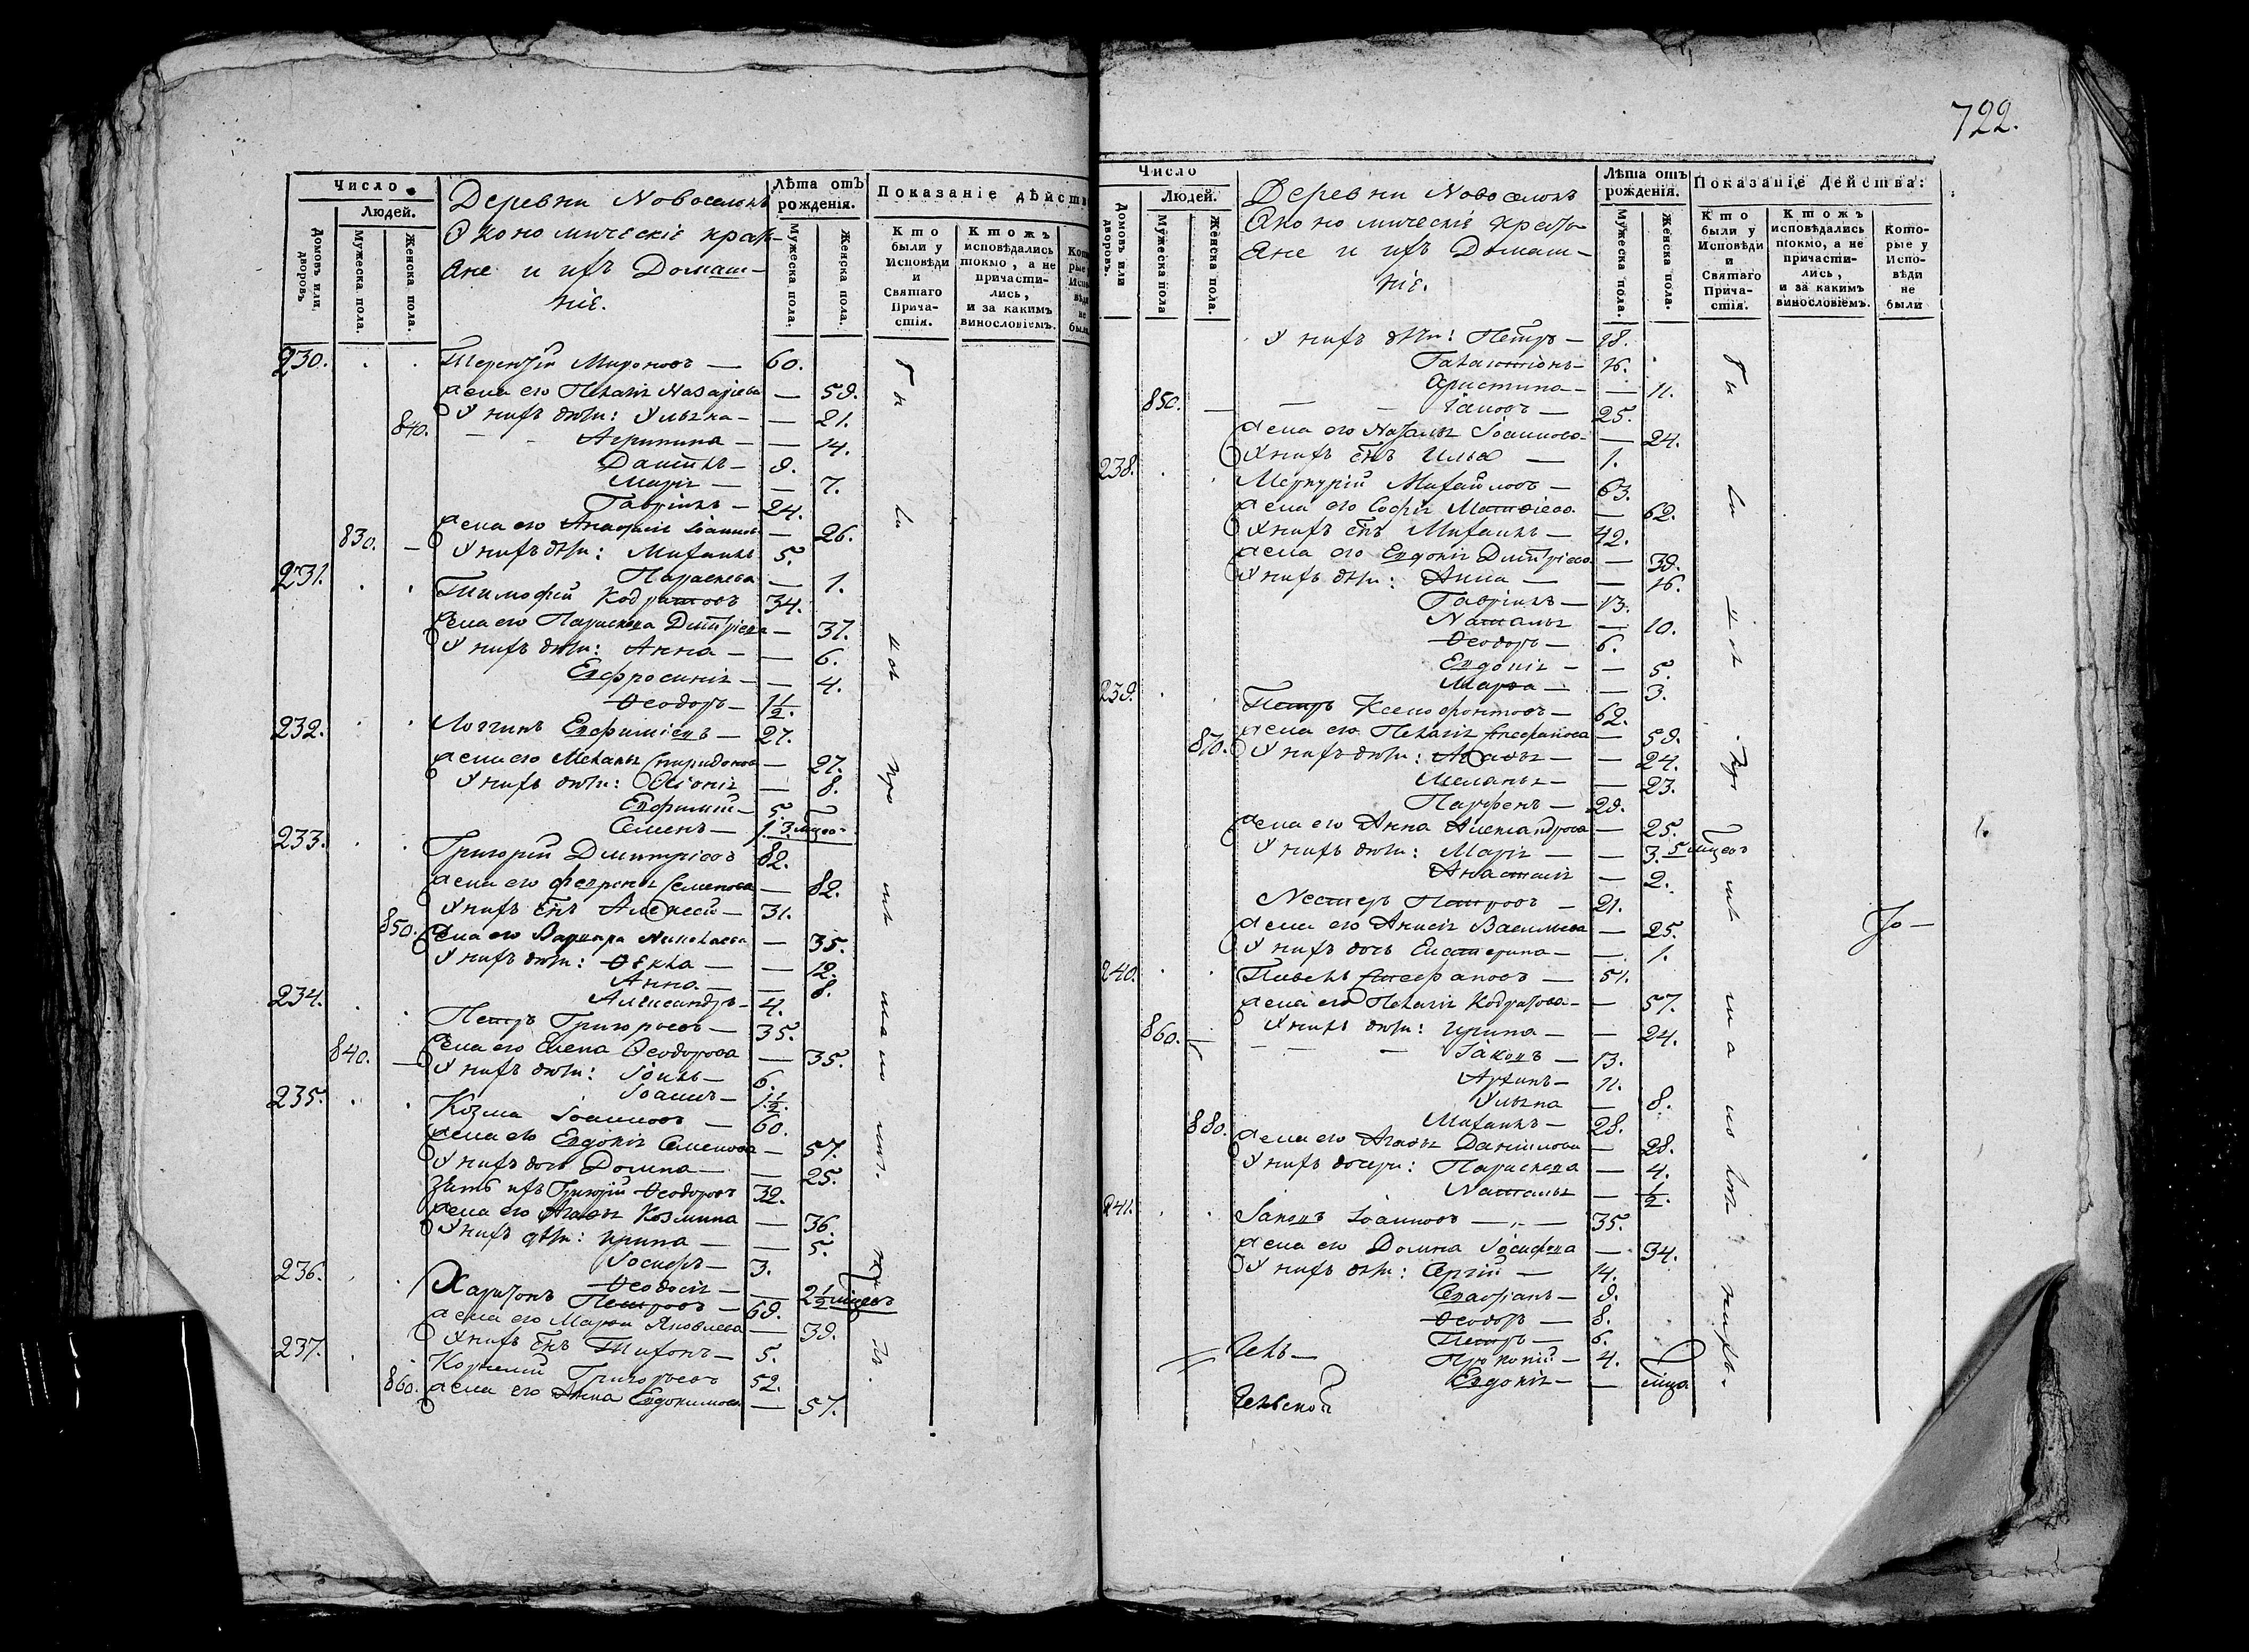 722.
Число
Людей.
Домовъ или дворовъ.
Мужеска пола.
Женска пола.
Деревни Новоселокъ
Экономическіе крестъ-
яне и ихъ Домаш-
ніе.
Лѣта отъ рожденія.
Мужеска пола.
Женска пола.
Показаніе дѣйств
Кто были у Исповѣди и Святаго Причастія.
Ктожъ исповѣдались токмо, а не причастились, и за какимъ винословіемъ.
230. Терентій Мироновъ — 60.
жена его Пелагія Назарьева — 59.
У нихъ дѣти: Ульяна — 21.
840. Агрипина — 14.
Даніилъ — 9.
Марія — 7.
Гавріилъ — 24.
жена его Анастасія Іоаннова — 26.
830. У нихъ дѣти: Михаилъ 5.
Параскева — 1.
231. Тимофей Кодратовъ 34.
жена его Параскева Дмитріева — 37.
У нихъ дѣти: Анна — 6.
Евфросинія — 4.
Ѳеодоръ — 1 1/2.
232. Логгинъ Евфиміевъ — 27.
жена его Меланья Спиридонова — 27.
У нихъ дѣти: Ѳеіонія — 8.
Евфимій — 5.
Семенъ — 1. 3 мцео-
233. Григорій Дмитріевъ 82.
жена его Февронья Семенова — 82.
У нихъ снъ Алексей — 31.
850. жена его Варвара Николаева — 35.
У нихъ дѣти: Ѳекла — 12.
Анна — 8.
Александръ — 4.
234. Петръ Григорьевъ — 35.
жена его Елена Ѳеодорова — 35.
840. У нихъ дѣти: Іоиль — 6.
Іоаннъ — 1 1/2.
235. Козма Іоанновъ — 60.
жена его Евдокія Семенова — 57.
У нихъ дочь Домна — 25.
Зять ихъ Григорій Ѳеодоровъ 32.
жена его Агаѳья Козмина — 36.
У нихъ дѣти: Ирина — 5.
Іосифъ — 3.
Ѳеодосія — 2 1/2 мцевъ
236. Харитонъ Петровъ — 69.
жена его Марѳа Яковлева — 39.
У нихъ снъ Тихонъ — 5.
237. Корнелій Григорьевъ 52.
860. жена его Анна Евдокимова — 57.
Число
Людей.
Домовъ или дворовъ.
Мужеска пола
Женска пола.
Деревни Новоселокъ
Экономическіе крестъ-
яне и ихъ Домаш-
ніе.
Лѣта отъ рожденія.
Мужеска пола.
Женска пола.
Показаніе Действа:
Кто были у Исповѣди и Святаго Причастія.
Ктожъ исповѣдались токмо, а не причастились, и за какимъ винословіемъ.
Которые у Исповѣди не были
У нихъ дѣти: Петръ — 18.
Галактіонъ — 16.
Христина — 11.
850. Іаковъ — 25.
жена его Наталья Іоаннова — 24.
У нихъ снъ Илья — 1.
238. Меркурій Михайловъ — 63.
жена его Софія Матѳіева — 62.
У нихъ снъ Михаилъ — 42.
жена его Евдокія Дмитріева — 39.
У нихъ дѣти: Анна — 16.
Гавріилъ — 13.
Наталья — 10.
Ѳеодоръ — 6.
Евдокія — 5.
Марѳа — 3.
239. Петръ Ксенофонтовъ — 62.
жена его Пелагія Стефанова — 59.
870. У нихъ дѣти: Агаѳья — 24.
Меланья — 23.
Парфенъ — 29.
жена его Анна Александрова — 25.
У нихъ дѣти: Марія — 3. 5 мцевъ
Анастасія — 2.
Нестеръ Петровъ — 21.
жена его Анисія Васильева — 25.
У нихъ дочь Екатерина — 1.
240. Павелъ Стефановъ — 51.
жена его Пелагія Кодратова — 57.
860. У нихъ дѣти: Ирина — 24.
Іаковъ — 13.
Архипъ — 11.
Ульяна — 8.
880. Михаилъ — 28.
жена его Агаѳья Даніилова — 28.
У нихъ дочери: Параскева — 4.
Наталья — 1/2.
241. Іаковъ Іоанновъ — 35.
жена его Домна Іосифова — 34.
У нихъ дѣти: Сергій — 14.
Евстратъ — 9.
Ѳеодоръ — 8.
Петръ — 6.
Прокопій — 4.
Евдокія — мца